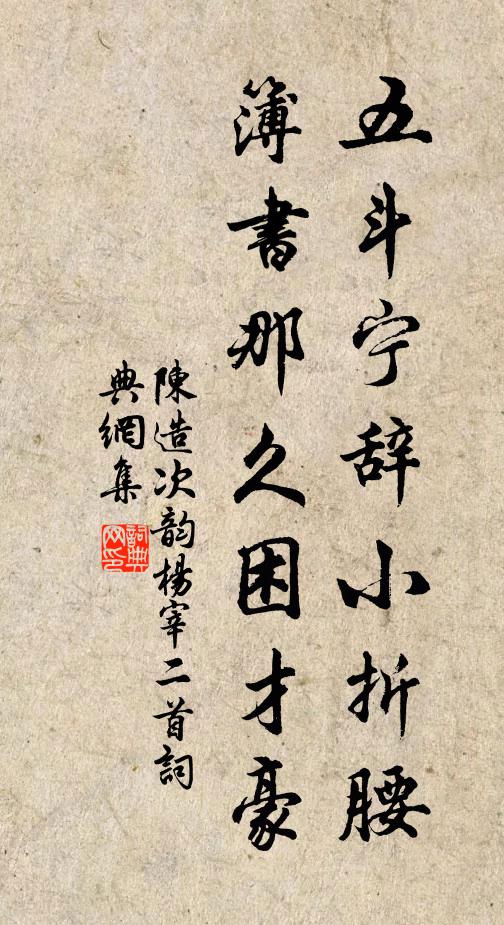 五斗宁辞小折腰
簿书那久困才豪
陳造次韵楊宰二首詞
典網集
詞典网印